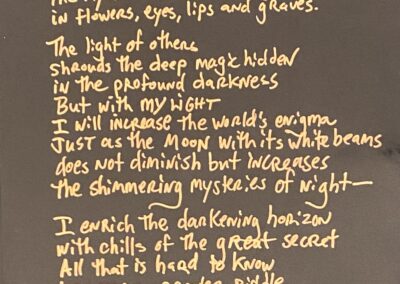 in flowers, eyes, lips and graves.
The light of others
shrouds the deep magic hidden
in the profound darkness
But with my LIGHT
I will increase the world's enigma
JUST as the MOON With its White beams
does Not diminish but INCREASES
the shimmering mysteries of Night—
I ENRICH THE darkening horizon
with chills of the great secret
All that is hard to know